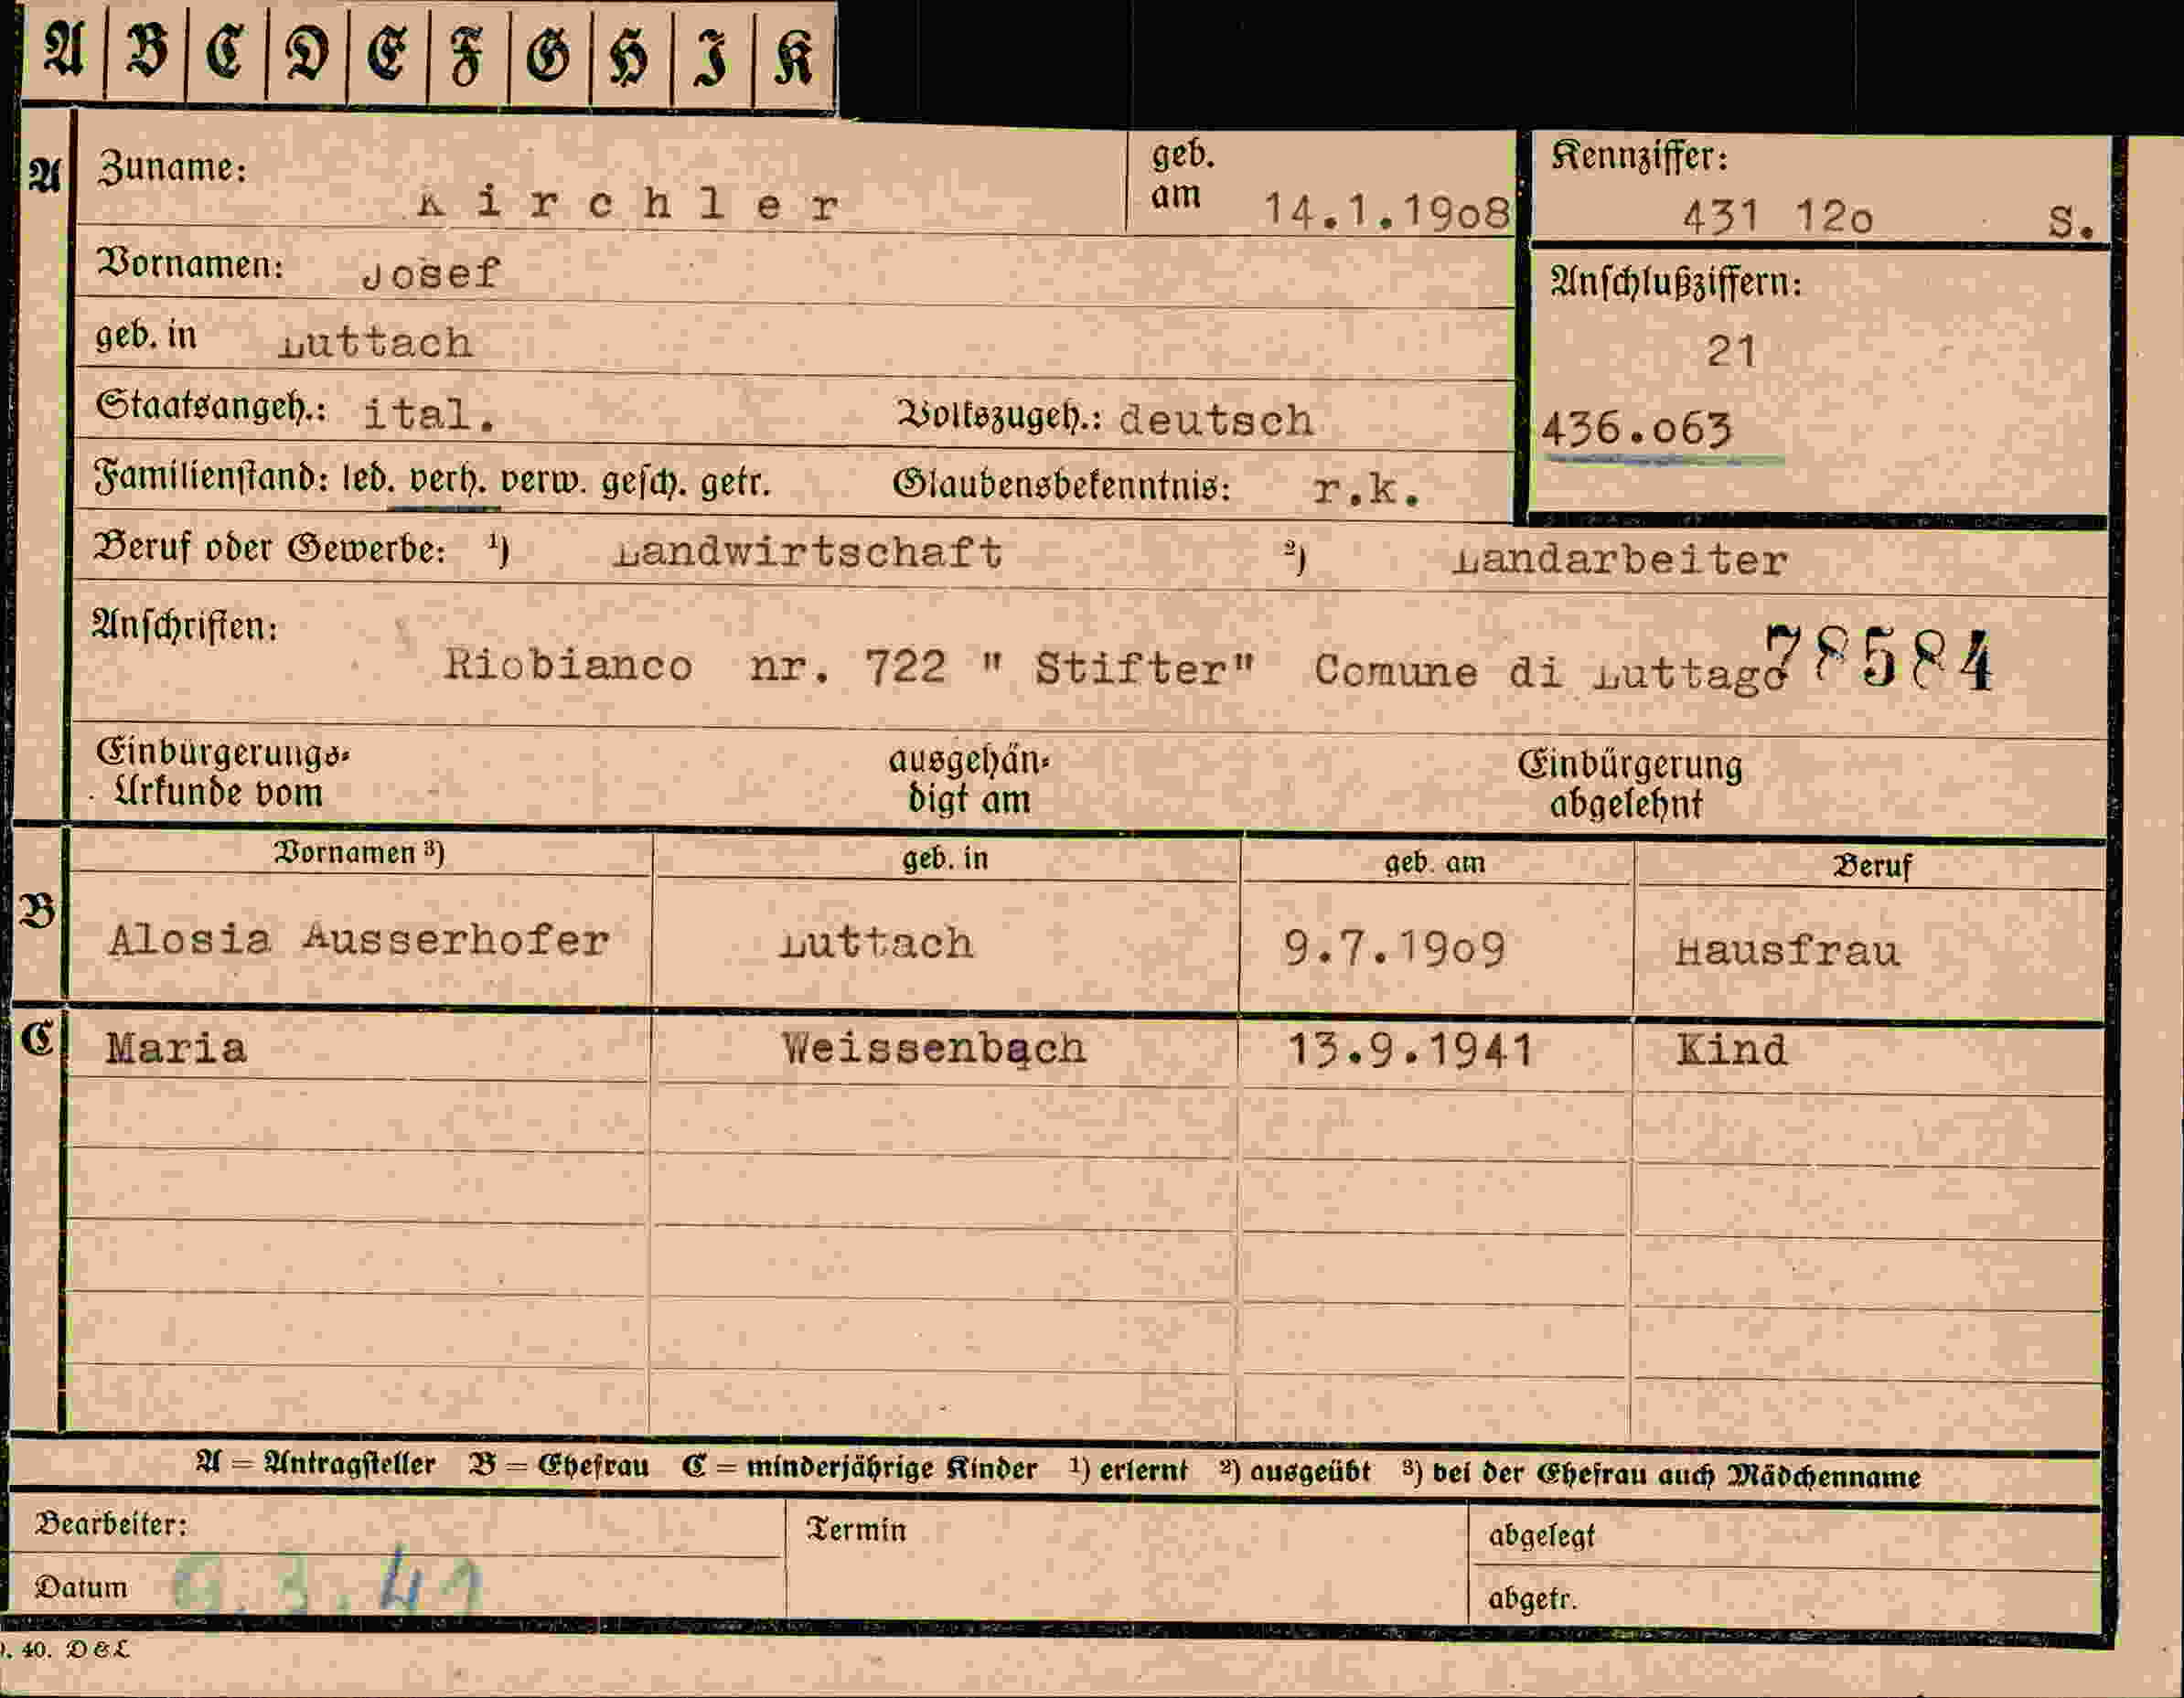 A B C D E F G H I K
A Zuname: Kirchler geb. am 14.1.1908 Kennziffer: 431 120 S.
Vornamen: Josef Anschlußziffern:
geb. in Luttach 21
Staatsangeh.: ital. Volkszugeh.: deutsch 436.063
Familienstand: led. verh. verw. gesch. getr. Glaubensbekenntnis: r.k.
Beruf oder Gewerbe: ¹) Landwirtschaft ²) Landarbeiter
Anschriften: Riobianco nr. 722 " Stifter" Comune di Luttago 78584
Einbürgerungs- ausgehän- Einbürgerung
Urkunde vom digt am abgelehnt
Vornamen ³) geb. in geb. am Beruf
B Alosia Ausserhofer Luttach 9.7.1909 Hausfrau
C Maria Weissenbach 13.9.1941 Kind
A = Antragsteller B = Ehefrau C = minderjährige Kinder ¹) erlernt ²) ausgeübt ³) bei der Ehefrau auch Mädchenname
Bearbeiter: Termin abgelegt
Datum 3.41 abgetr.
. 40. D & L